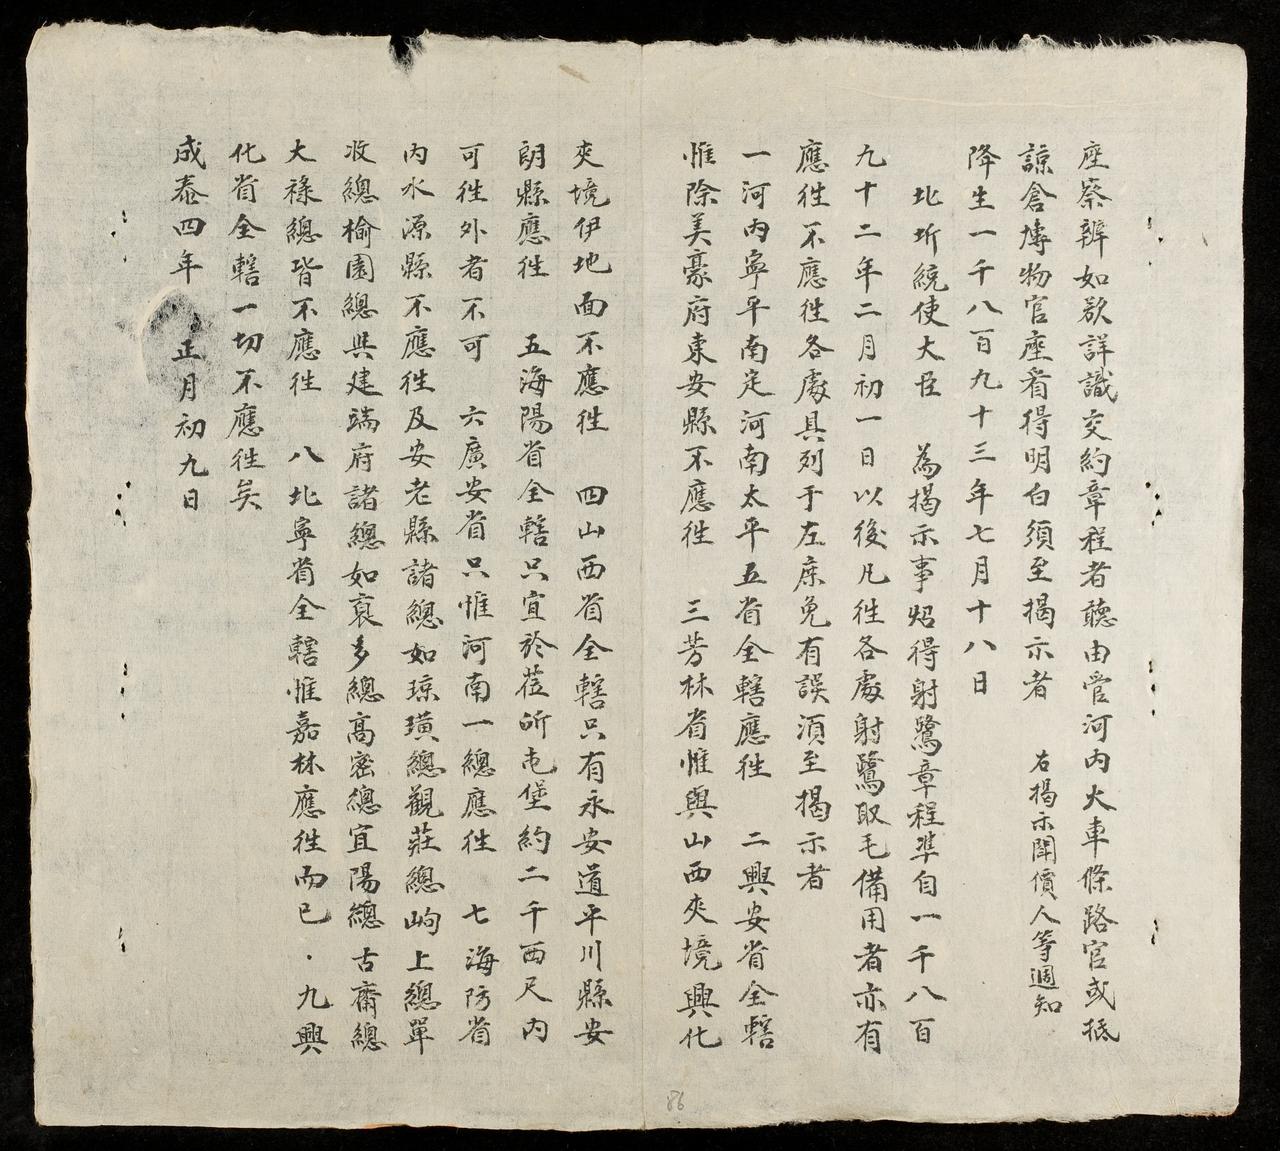 座察辨如欲詳識交約章程者聽由管河內火車條路官或抵
諒倉博物官座看得明白須至揭示者　右揭示聞價人等週知
降生一千八百九十三年七月十八日
北圻統使大臣　為揭示事炤得射鷺章程準自一千八百
九十二年二月初一日以後凡徃各處射鷺取毛備用者亦有
應徃不應徃各處具列于左庶免有誤須至揭示者
一河內寧平南定河南太平五省全轄應徃　二興安省全轄
惟除美豪府東安縣不應徃　三芳林省惟與山西夾境興化
夾境伊地面不應徃　四山西省全轄只有永安道平川縣安
朗縣應徃　五海陽省全轄只宜於蒞所屯堡約二千西尺內
可徃外者不可　六廣安省只惟河南一總應徃　七海防省
內水源縣不應徃及安老縣諸總如琼璜總觀莊總岣上總單
收總榆園總與建端府諸總如裒多總高密總宜陽總古齋總
大祿總皆不應徃　八北寧省全轄惟嘉林應徃而已．九興
化省全轄一切不應徃矣
成泰四年　正月初九日
86